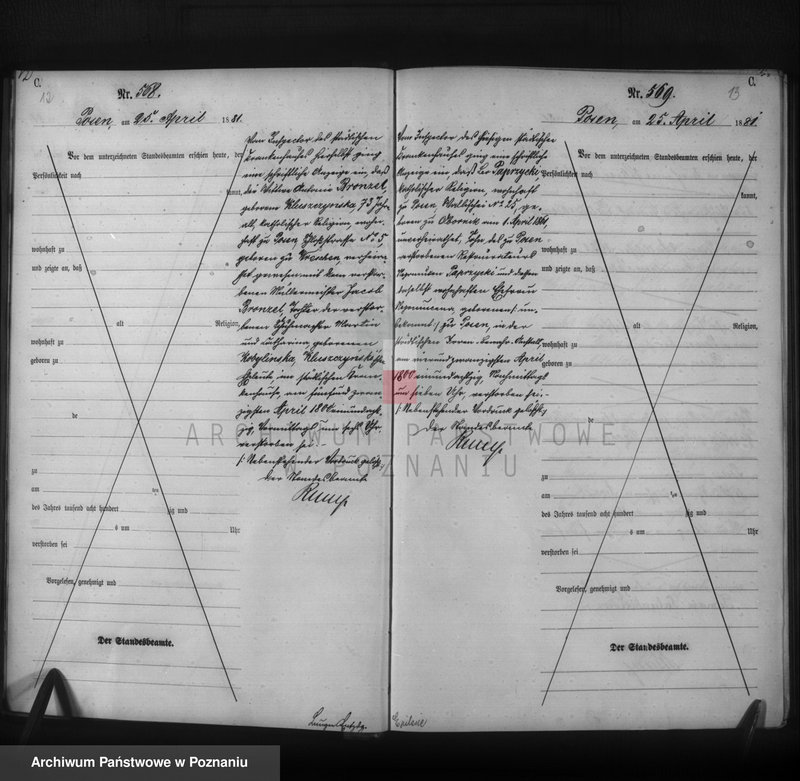 C.
12
Nr. 568.
Posen, am 25. April 1881.
Vor dem unterzeichneten Standesbeamten erschien heute, der
Persönlichkeit nach
kannt,
wohnhaft zu
und zeigte an, daß
alt Religion,
wohnhaft zu
geboren zu
de
zu
am ten
des Jahres tausend acht hundert zig und
s um Uhr
verstorben sei
Vorgelesen, genehmigt und
Der Standesbeamte.
Vom Inspector des städtischen
Krankenhauses hierselbst ging
eine schriftliche Anzeige ein, daß
die Wittwe Antonie Bronzel,
geborene Kluszczynska, 73 Jahr
alt, katholischer Religion, wohn-
haft zu Posen, No. 5,
geboren zu Wreschen, verheira-
thet gewesen mit dem verstor-
benen Müllermeister Jacob
Bronzel, Tochter der verstor-
benen Martin
und Catharina, geborenen
Kobylinska, Kluszczynski
Eheleute, im städtischen Kran-
kenhause, am fünfundzwan-
zigsten April 1800 einundacht-
zig, Vormittags um sechs Uhr
verstorben sei.
Nebenstehender Vordruck gelöscht
Der Standesbeamte
C.
13
Nr. 569.
Posen, am 25. April 1881
Vor dem unterzeichneten Standesbeamten erschien heute, der
Persönlichkeit nach
kannt,
wohnhaft zu
und zeigte an, daß
alt Religion,
wohnhaft zu
geboren zu
de
zu
am ten
des Jahres tausend acht hundert zig und
s um Uhr
verstorben sei
Vorgelesen, genehmigt und
Der Standesbeamte.
Vom Inspector des hiesigen städtischen
Krankenhauses ging eine schriftliche
Anzeige ein, daß Paprzycki
katholischer Religion, wohnhaft
zu Posen Wallischei No. 25, ge-
boren zu Obornik am 1. April
unverheirathet, Sohn des zu Posen
verstorbenen
Paprzycki und dessen
daselbst wohnhaften Ehefrau
geborenen (un-
bekannt) zu Posen, in der
städtischen Irren Anstalt
am vierundzwanzigsten April
1800 einundachtzig, Nachmittags
um sieben Uhr, verstorben sei.
Nebenstehender Vordruck gelöscht
Der Standesbeamte
ARCHIWUM PAŃSTWOWE
W POZNANIU
Archiwum Państwowe w Poznaniu